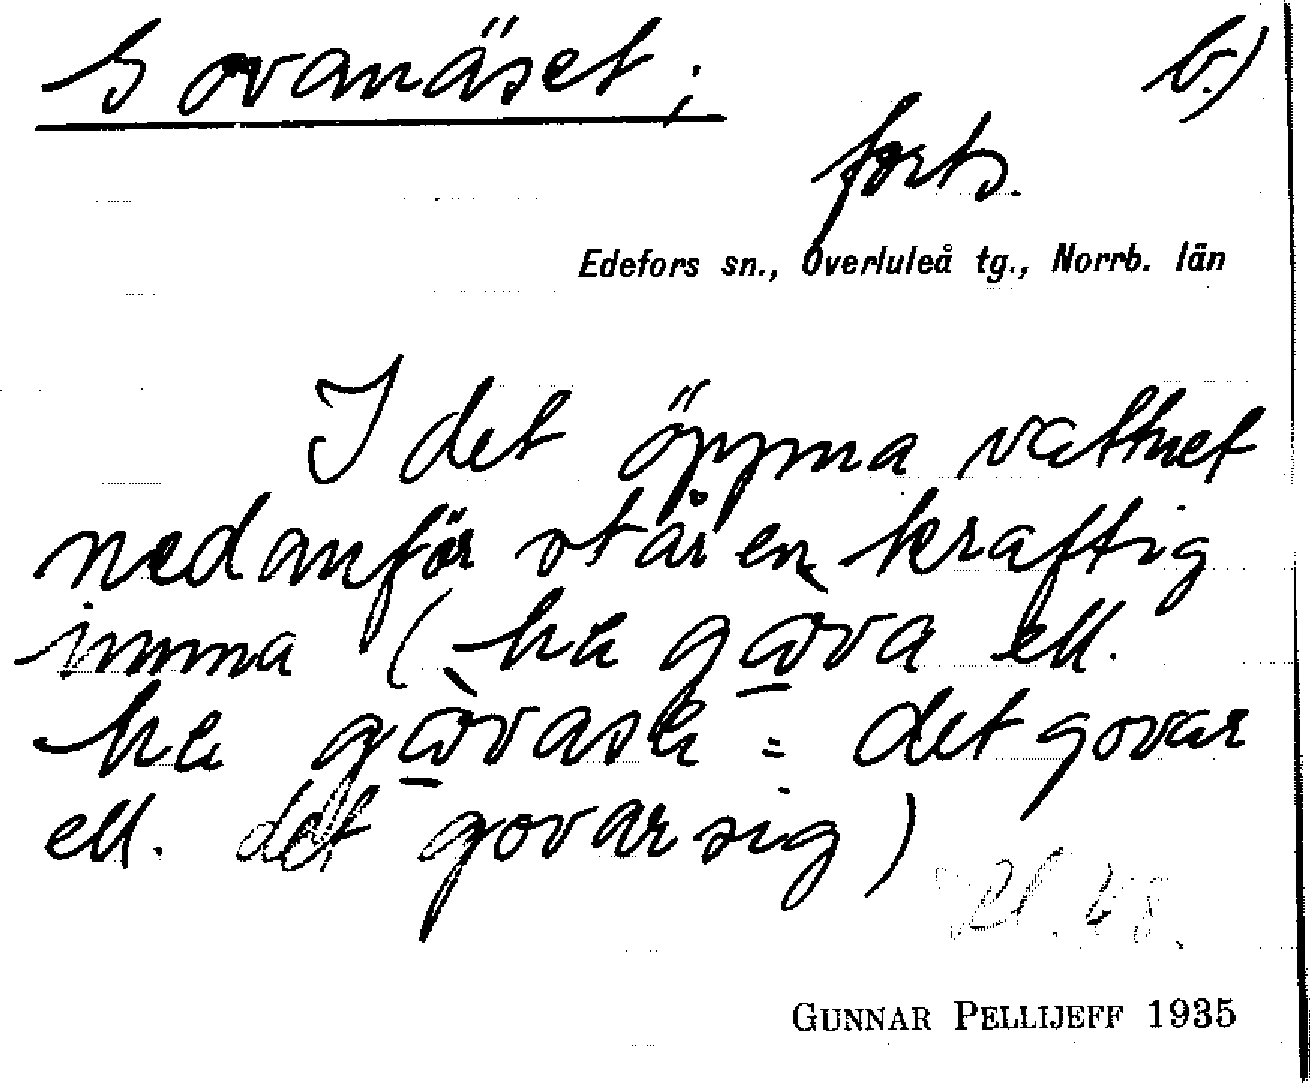 Govanäset; b.)
forts.
Edefors sn., Överluleå tg., Norrb. län
I det öppna vattnet
nedanför står en kraftig
imma (hɛ gɷ̀va ell.
hɛ gɷ̀vasɛ = det govar
ell. det govar sig)
GUNNAR PELLIJEFF 1935